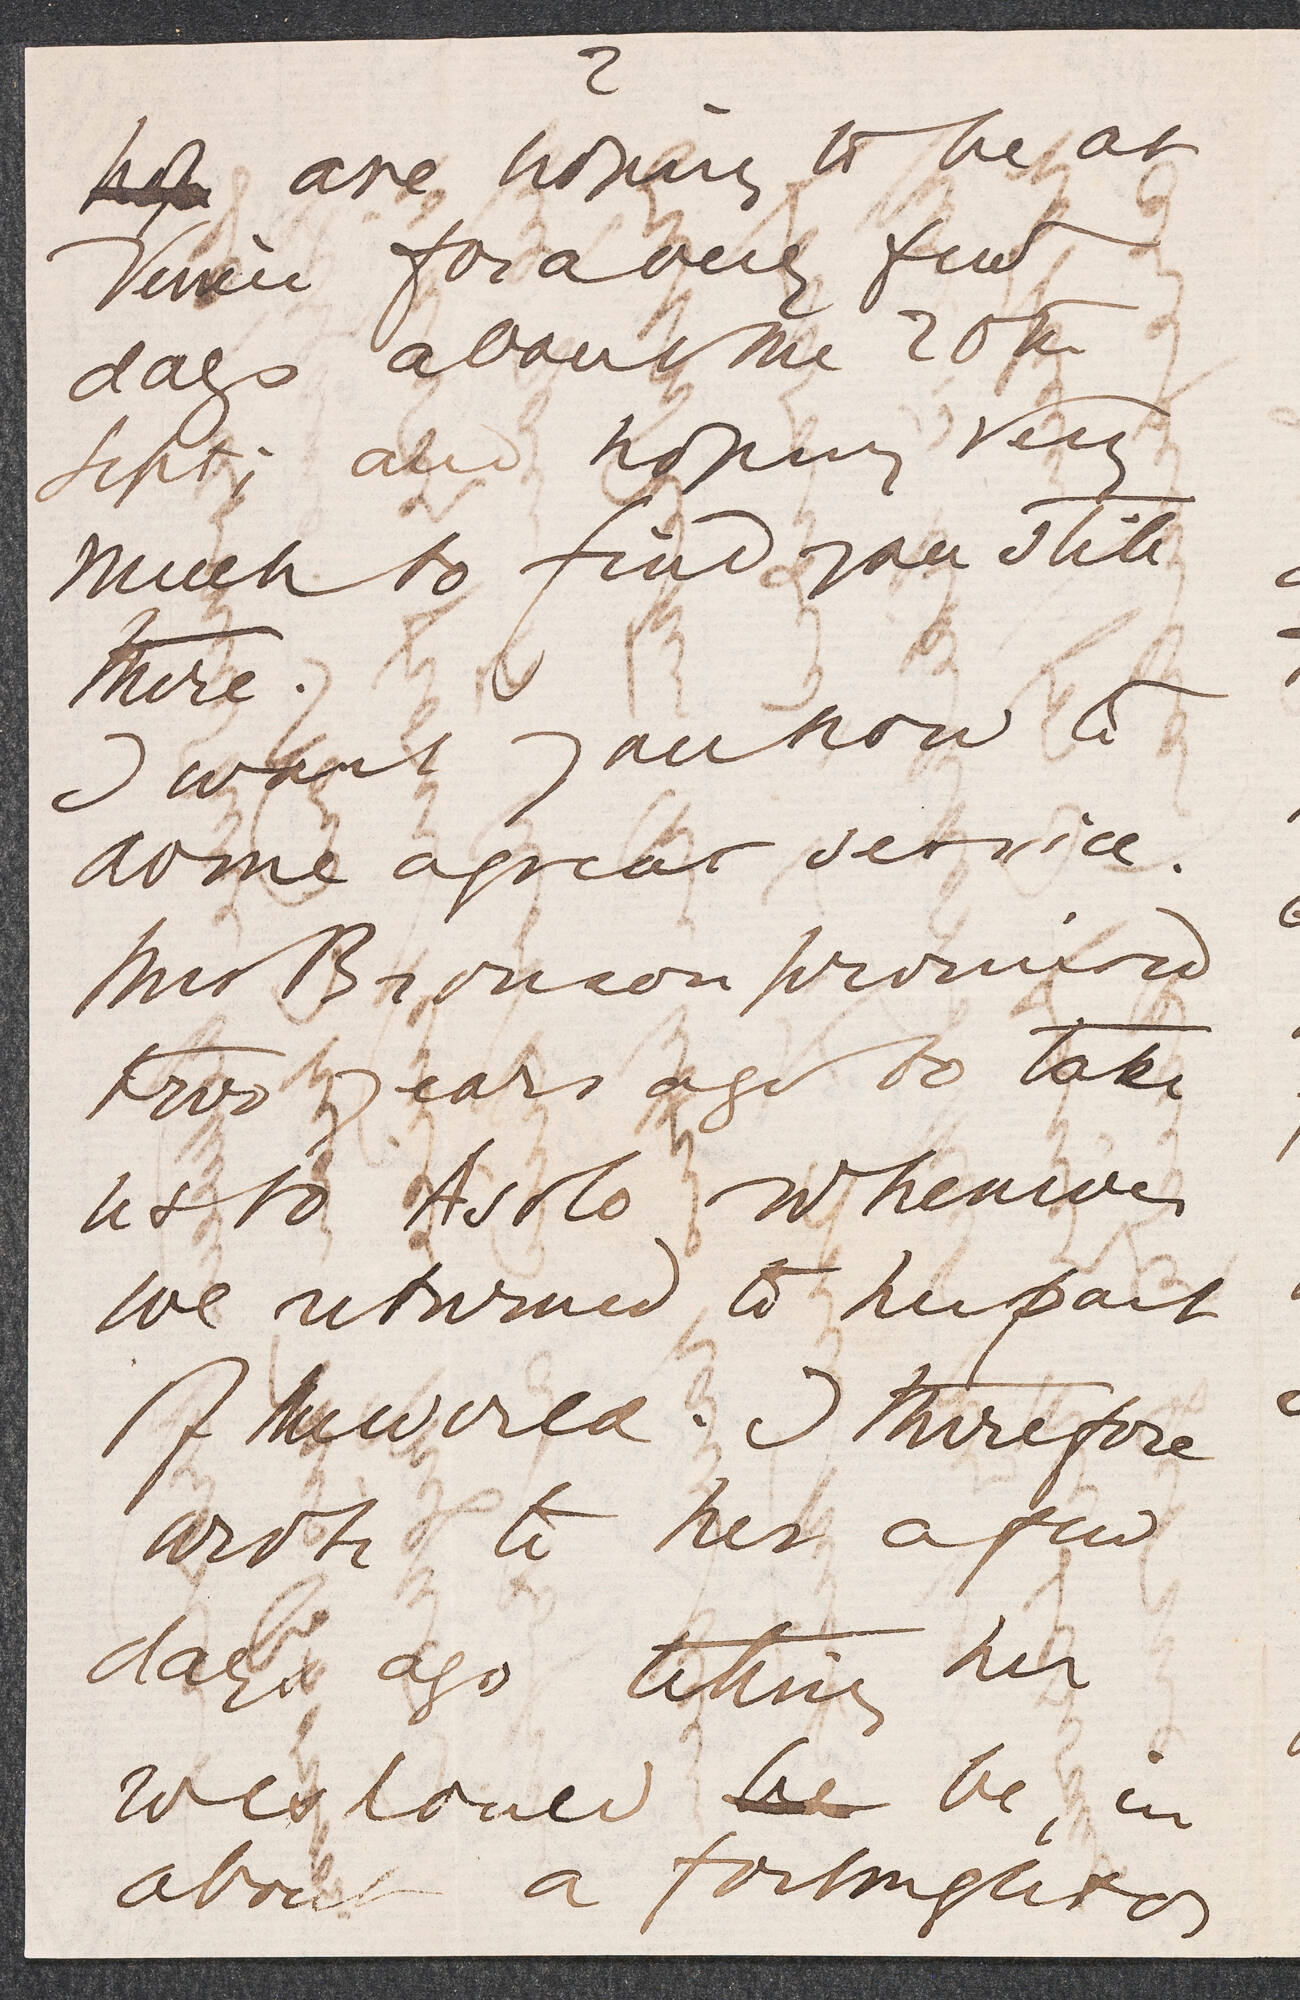 2
hop are hoping to be at
Venice for a very few
days about the 20th
Sept; and hoping very
much to find you still
there.
I want you now to
do me a great service.
Mrs Bronson promised
two years ago to take
us to Asolo whenever
we returned to her part
of the world. I therefore
wrote to her a few
days ago telling her
we should be be, in
about a fortnight or